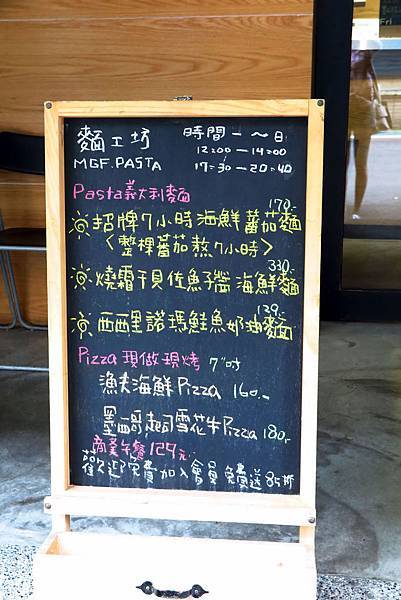 麵工坊 時間一～日
12:00－14:00
MGF.PASTA
17:30－20:40
Pasta義大利麵
170.-
招牌7小時海鮮蕃茄麵
<整棵蕃茄熬7小時>
330.-
燒霜干貝佐魚子醬海鮮麵
139.-
西西里諾瑪鮭魚奶油麵
Pizza現做現烤 7"吋
漁夫海鮮Pizza 160.-
墨西哥起司雪花牛Pizza 180.-
商業午餐129元
歡迎免費加入會員免費送85折
Fri